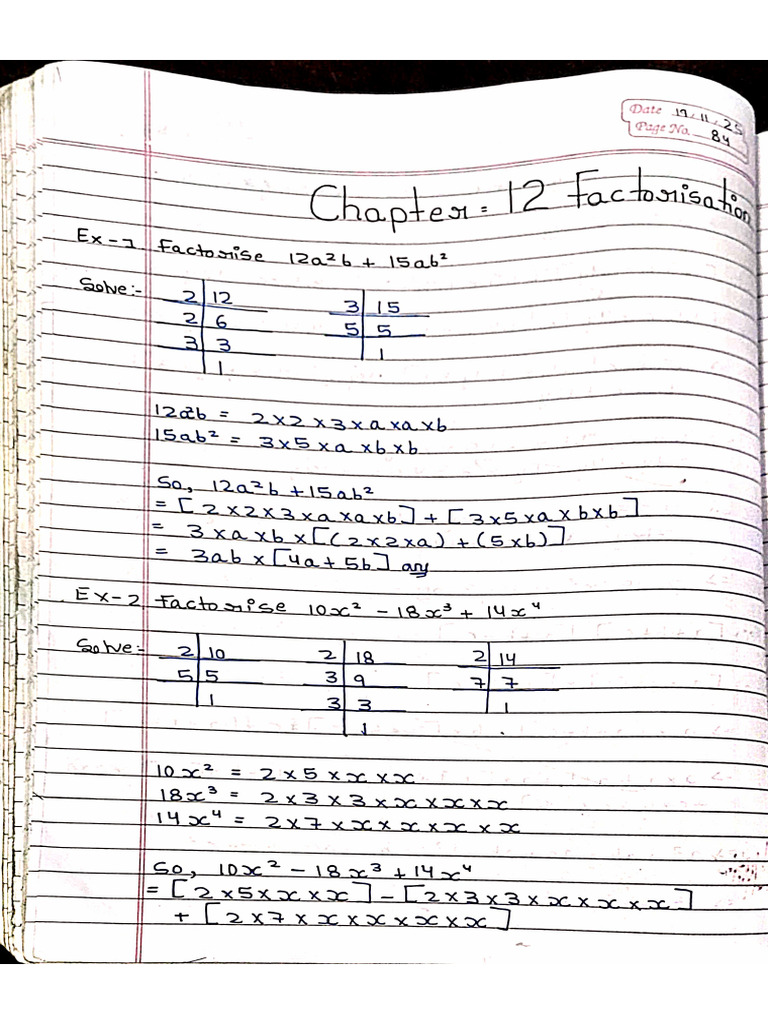 Date 19.11.25
Page No. 84
Chapter = 12 Factorisation
Ex-1 Factorise 12a²b + 15ab²
Solve:-
2 | 12   3 | 15
2 | 6   5 | 5
3 | 3   | 1
| 1
12a²b = 2×2×3×a×a×b
15ab² = 3×5×a×b×b
So, 12a²b + 15ab²
= [2×2×3×a×a×b] + [3×5×a×b×b]
= 3×a×b×[(2×2×a) + (5×b)]
= 3ab×[4a+5b] any
Ex-2 Factorise 10x² - 18x³ + 14x⁴
Solve:-
2 | 10   2 | 18   2 | 14
5 | 5   3 | 9   7 | 7
| 1   3 | 3   | 1
| 1
10x² = 2×5×x×x
18x³ = 2×3×3×x×x×x
14x⁴ = 2×7×x×x×x×x
So, 10x² - 18x³ + 14x⁴
= [2×5×x×x] - [2×3×3×x×x×x]
+ [2×7×x×x×x×x]